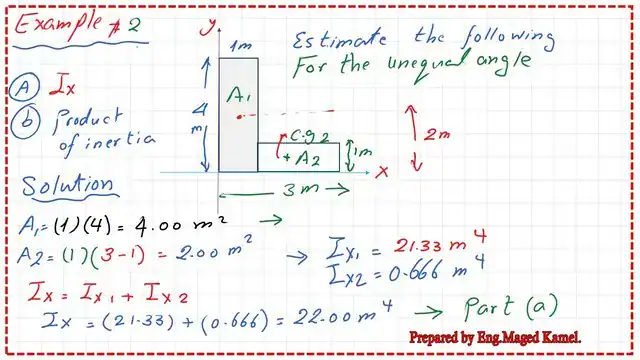 Example # 2
y
1m
Estimate the following
For the unequal angle
A Ix
b Product
of inertia
4
m
A1
c.g2
+ A2
1m
2m
x
3m
Solution
A1 = (1)(4) = 4.00 m²
A2 = (1)(3-1) = 2.00 m²
Ix1 = 21.33 m⁴
Ix2 = 0.666 m⁴
Ix = Ix1 + Ix2
Ix = (21.33) + (0.666) = 22.00 m⁴ → Part (a)
Prepared by Eng.Maged Kamel.